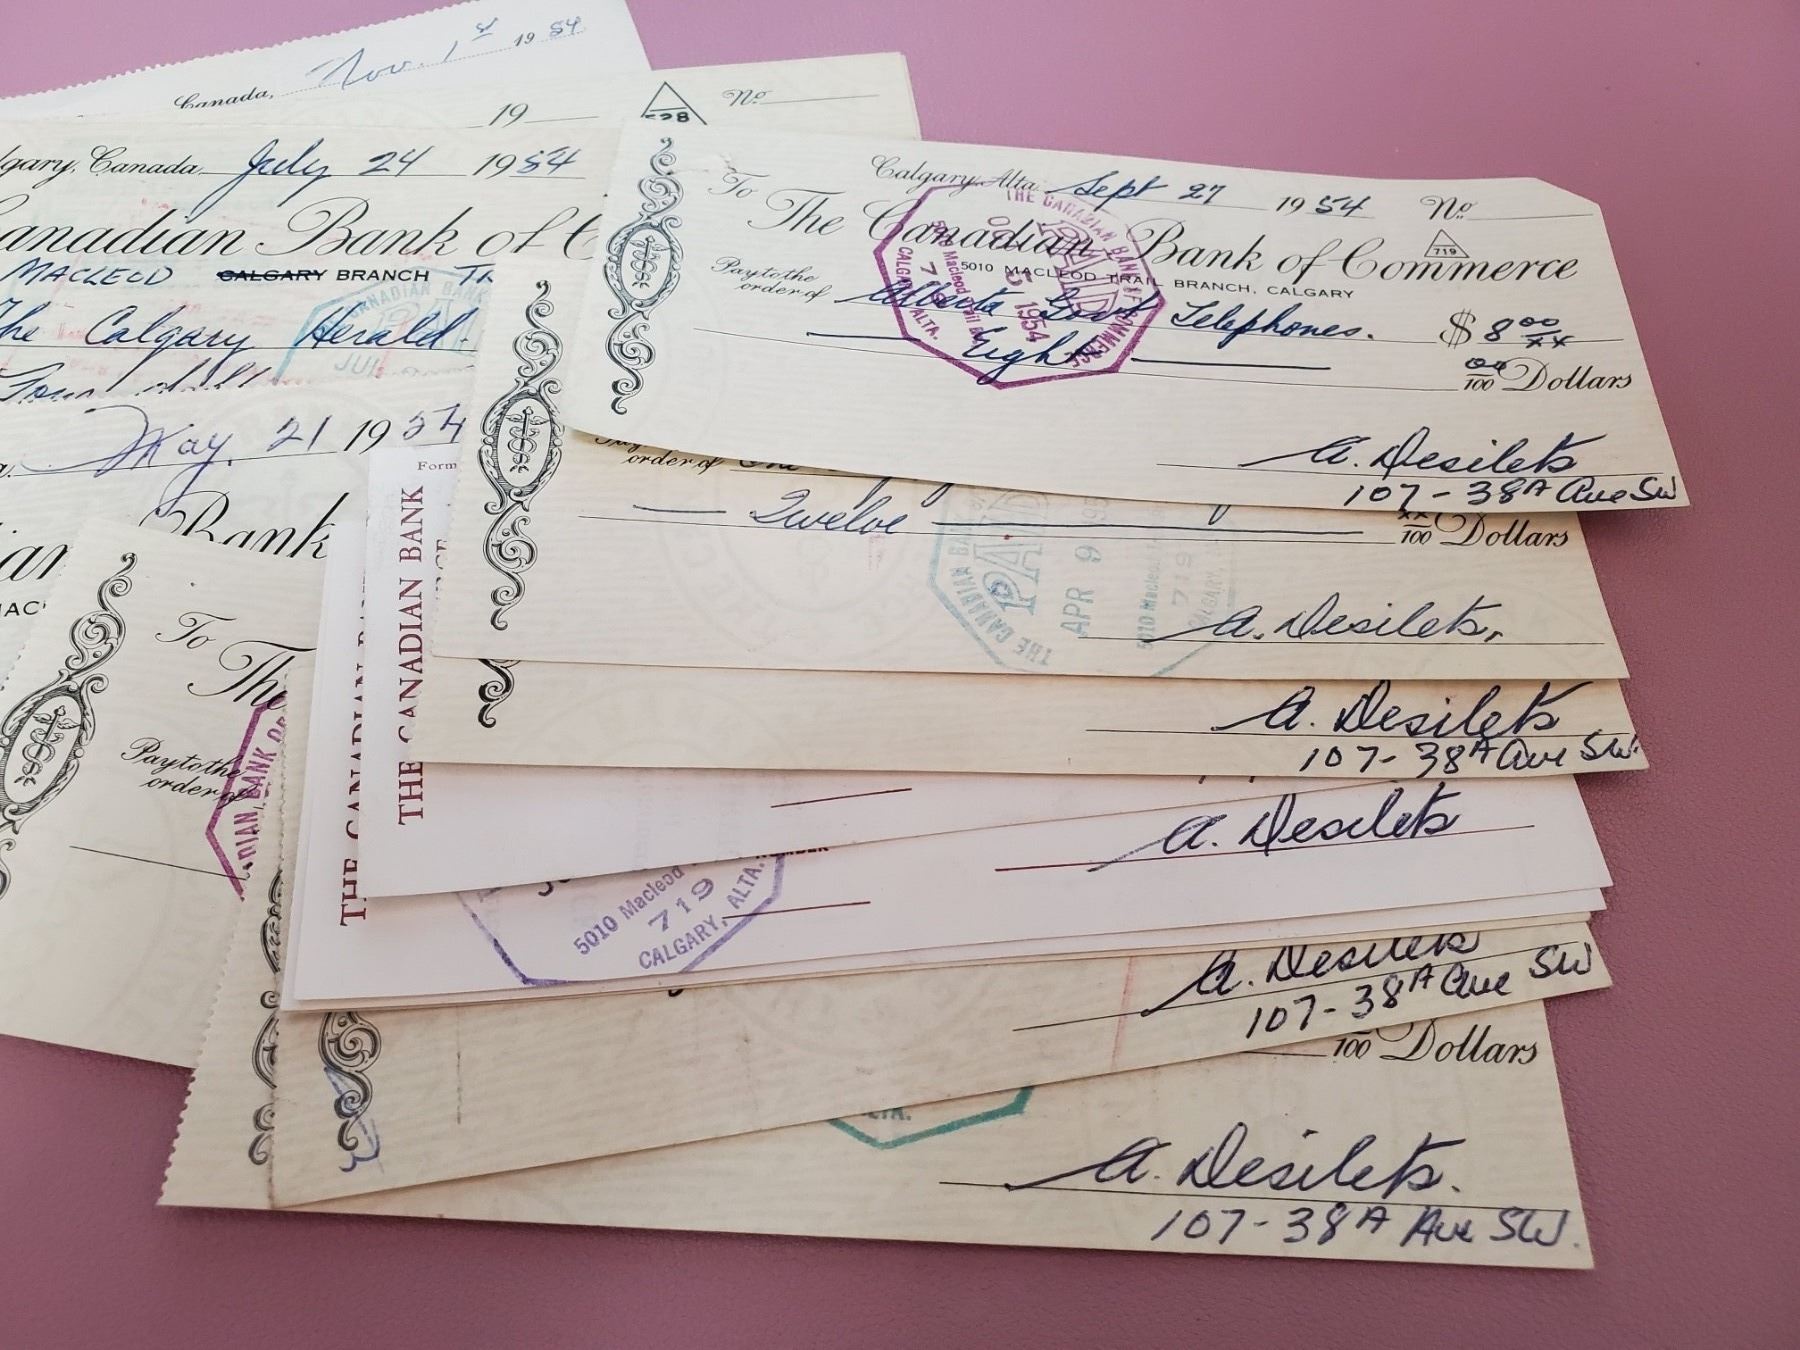 Canada, Nov. 1st 1954
19
528
No
Canada July 24 1954
anadian Bank of C
MACLEOD CALGARY BRANCH
The Calgary Herald.
May. 21 1954
Bank
To
The
Pay to the
order of
DIAN BANK OF
Calgary, Alta Sept 27 1954 No
To The Canadian Bank of Commerce
719
5010 MACLEOD TRAIL BRANCH, CALGARY
Pay to the
order of Alberta Govt Telephones. $ 8 00/xx
Eight 00/100 Dollars
THE CANADIAN BANK OF COMMERCE
PAID
5 1954
5010 Macleod Trail
719
CALGARY, ALTA.
A. Desilets
107-38A Ave SW
order of
Twelve xx/100 Dollars
THE CANADIAN BA
PAID
APR 9 195
5010 Macleod
719
CALGARY,
A. Desilets,
A. Desilets
107-38A Ave SW.
Form
THE CANADIAN BANK
A. Desilets
THE CANADIAN BAN
5010 Macleod
719
CALGARY, ALTA.
A. Desilets
107-38A Ave SW
100 Dollars
LTA.
A. Desilets.
107-38A Ave SW.